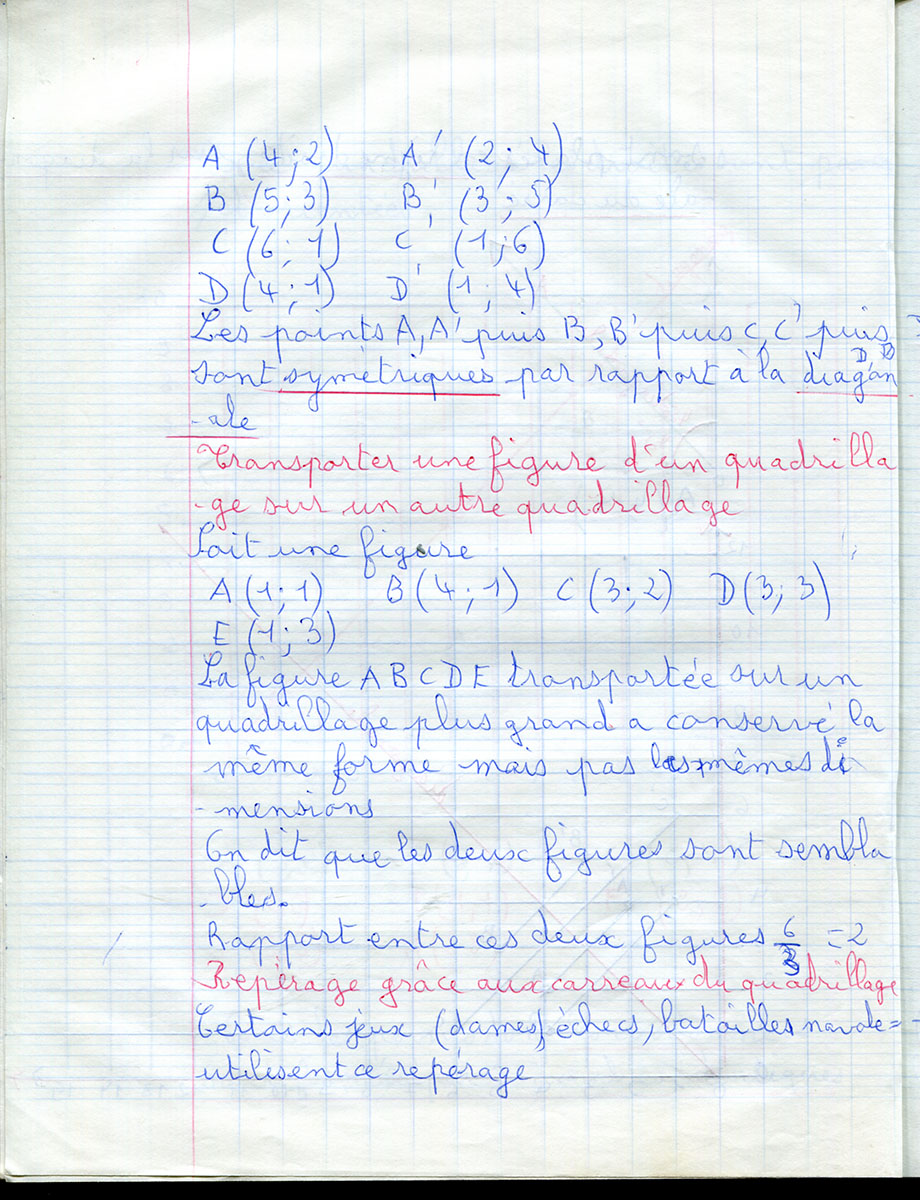 A (4;2) A' (2; 4)
B (5;3) B' (3;5)
C (6;1) C' (1;6)
D (4;1) D' (1;4)
Les points A,A' puis B,B' puis C,C' puis
D,D'
sont symétriques par rapport à la diagon
-ale
Transporter une figure d'un quadrilla
-ge sur un autre quadrillage
Soit une figure
A (1;1) B (4;1) C (3;2) D (3;3)
E (1;3)
La figure A B C D E transportée sur un
quadrillage plus grand a conservé la
même forme mais pas les mêmes di
-mensions
On dit que les deux figures sont sembla
-bles.
Rapport entre ces deux figures 6/3 = 2
Repérage grâce aux carreaux du quadrillage
Certains jeux (dames, échecs, batailles navale=
utilisent ce repérage